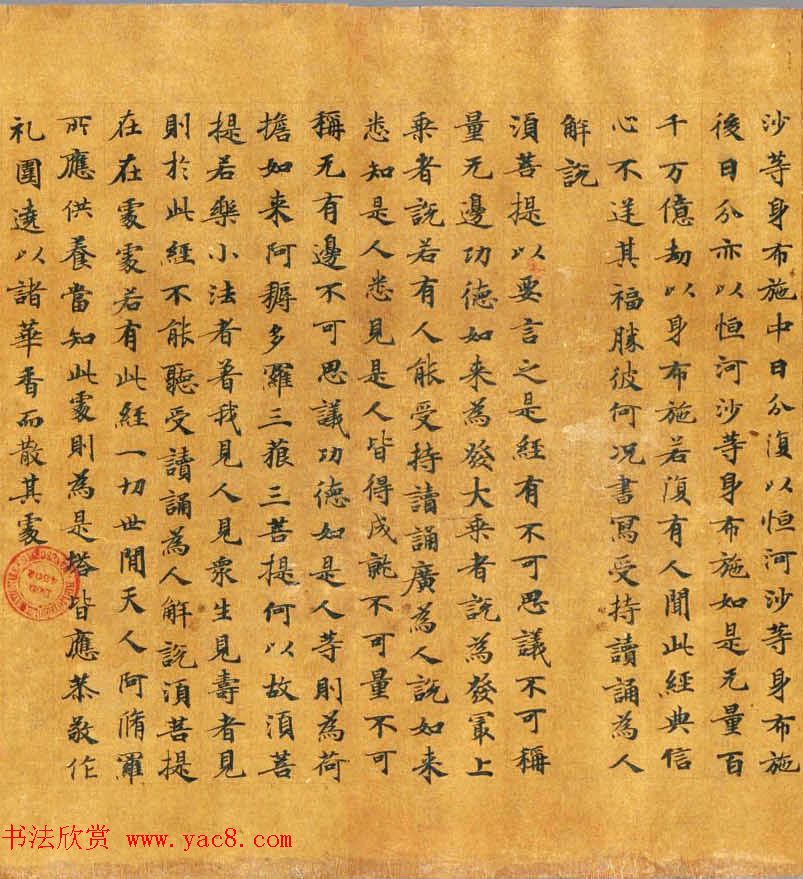 沙等身布施中日分復以恒河沙等身布施
後日分亦以恒河沙等身布施如是无量百
千万億劫以身布施若復有人聞此經典信
心不逆其福勝彼何况書寫受持讀誦為人
解說
須菩提以要言之是經有不可思議不可稱
量无邊功德如来為發大乘者說為發冣上
乘者說若有人能受持讀誦廣為人說如来
悉知是人悉見是人皆得成就不可量不可
稱无有邊不可思議功德如是人等則為荷
擔如来阿耨多羅三藐三菩提何以故須菩
提若樂小法者著我見人見衆生見壽者見
則於此經不能聽受讀誦為人解說須菩提
在在處處若有此經一切世閒天人阿脩羅
所應供養當知此處則為是塔皆應恭敬作
礼圍遶以諸華香而散其處
书法欣赏 www.yac8.com